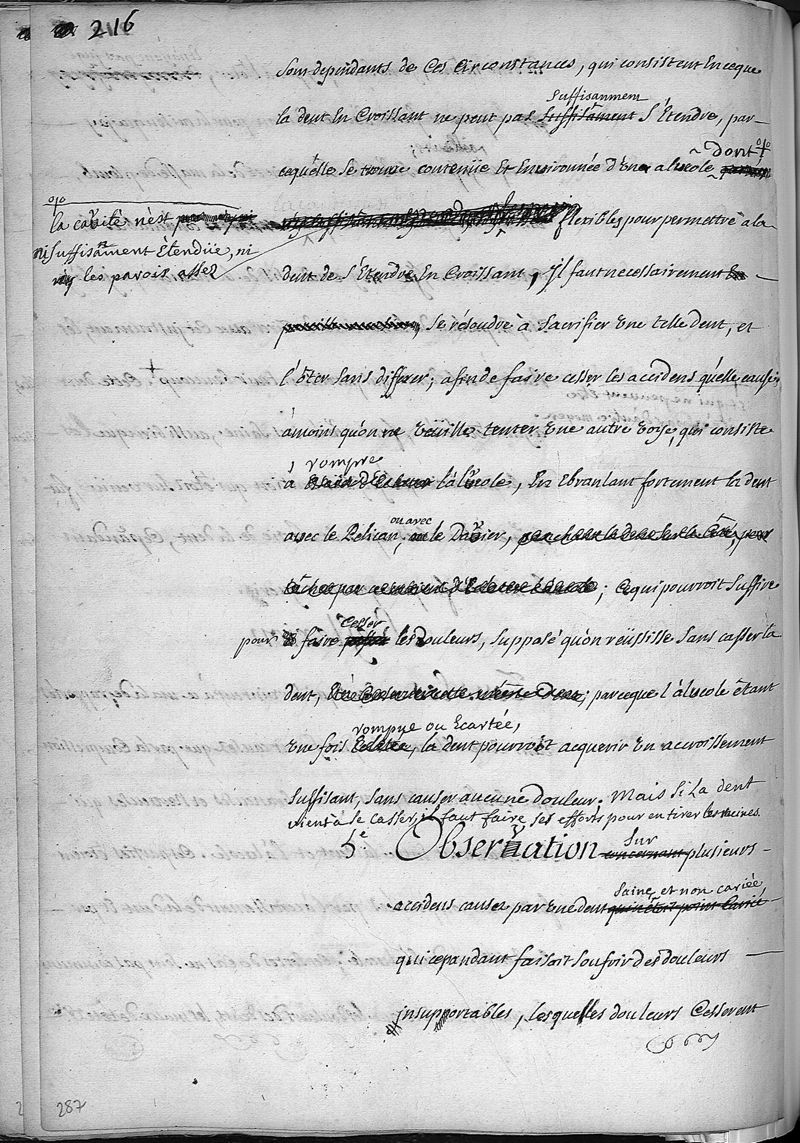 216
sont dependants de ces circonstances, qui consistent en ceque
suffisanment
la dent en croissant ne peut pas suffisament s'étendre, par-
cequ'elle se trouve contenüe et environnée d'une alveole dont
la cavité n'est
ni suffisanment étendüe, ni
ny les parois assez
flexibles pour permettre à la
dent de s'étendre en croissant, il faut necessairement
se résoudre à sacrifier une telle dent, et
l'ôter sans differer; afin de faire cesser les accidens qu'elle cause,
àmoins qu'on ne veüille tenter une autre voye, qui consiste
rompre
à l'alveole, en ébranlant fortement la dent
ou avec
avec le Pelican, ou le Davier,
; ce qui pourroit suffire
cesser
pour faire les douleurs, supposé qu'on reüssisse sans casser la
dent, ; parceque l'alveole étant
rompue ou écartée,
une fois la dent pourroit acquerir un accroissement
suffisant, sans causer aucune douleur. Mais si la dent
vient à se casser, il faut faire ses efforts pour en tirer les racines.
5e Observation concernant plusieurs
sur
saine et non cariée,
accidens causez par une dent qui n'étoit point cariée
qui cependant faisoit soufrir des douleurs
insupportables, lesquelles douleurs cesserent
287